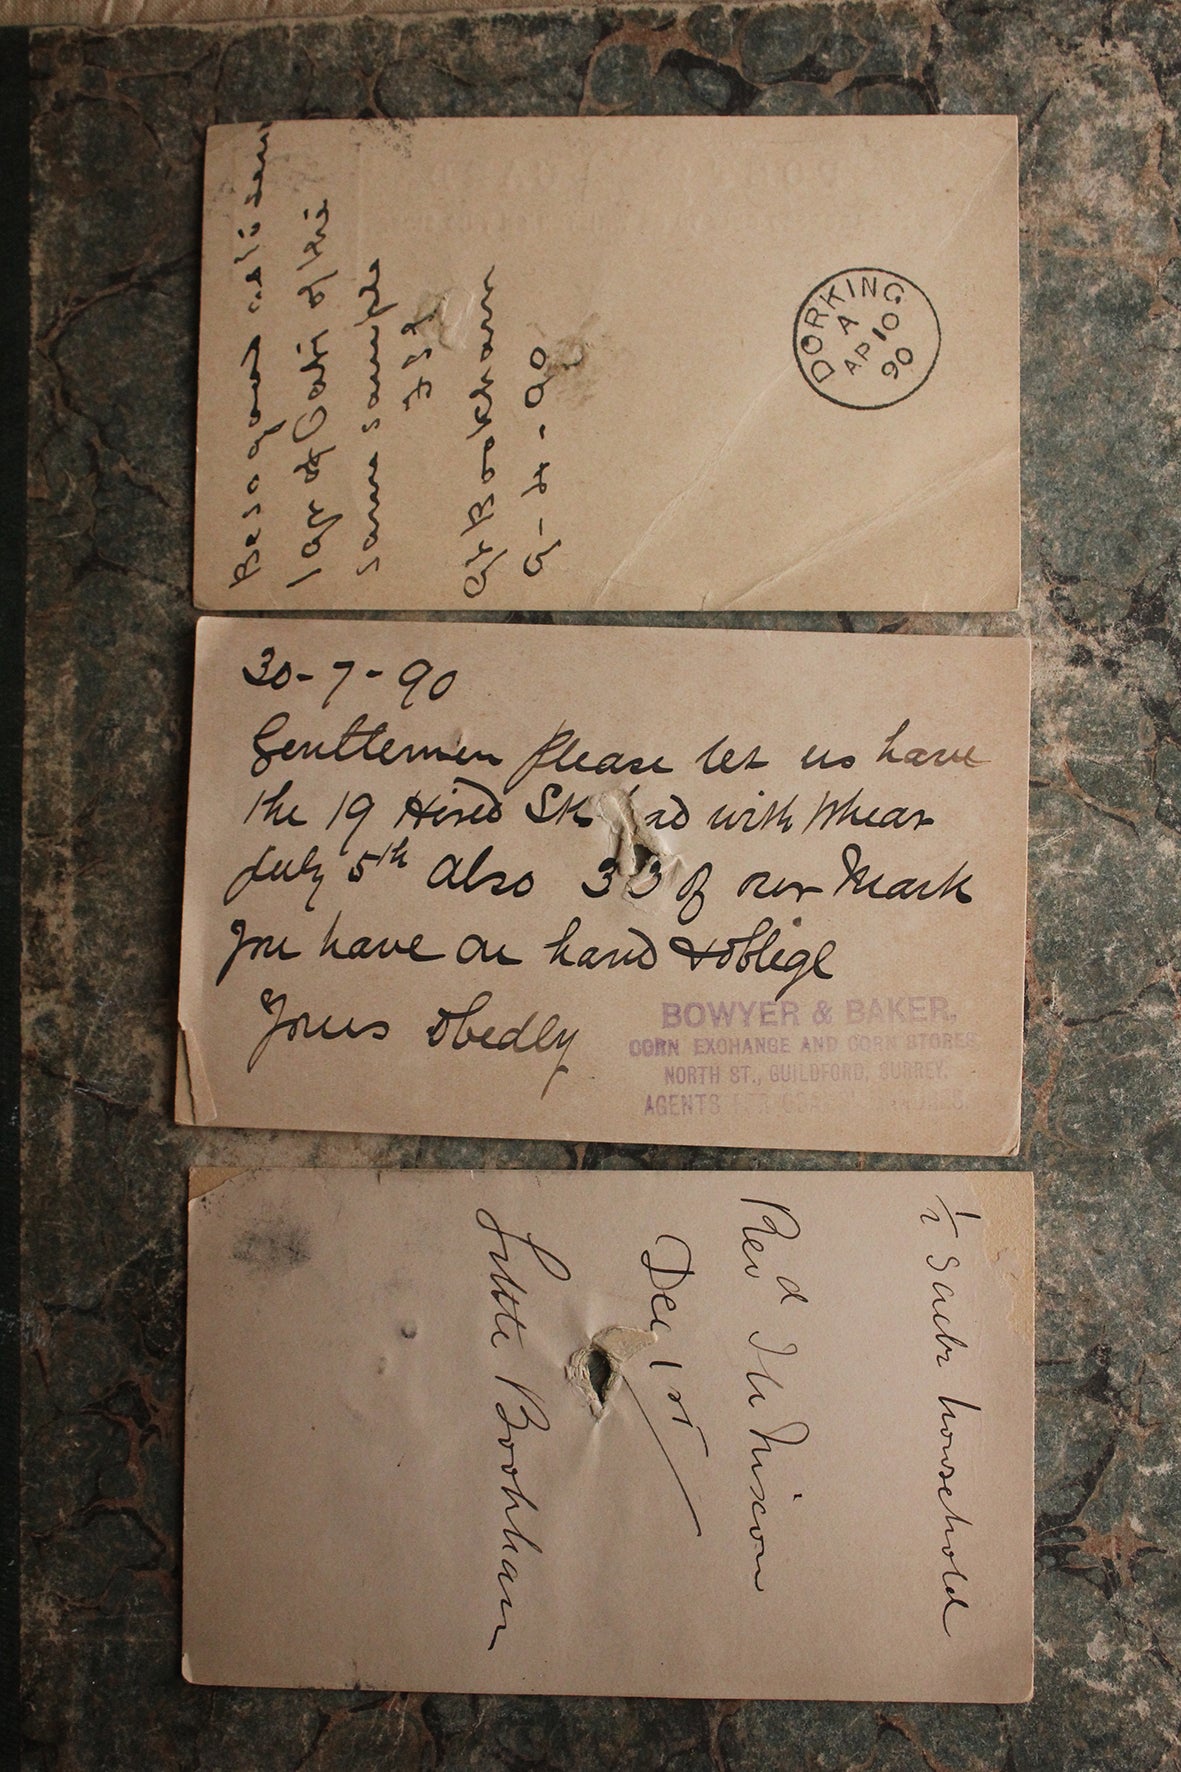 Be so good as to send
1 qr of Oats of this
same sample
Gt Bookham
9-4-90
DORKING
A
AP 10
90
30-7-90
Gentlemen please let us have
the 19 Hired with Wheat
July 5th also 33 of our Mark
you have on hand & oblige
Yours obedly
BOWYER & BAKER.
CORN EXCHANGE AND CORN STORES
NORTH ST., GUILDFORD, SURREY.
AGENTS
1/2 Sack household
Revd
Dec 1st
Little Bookham